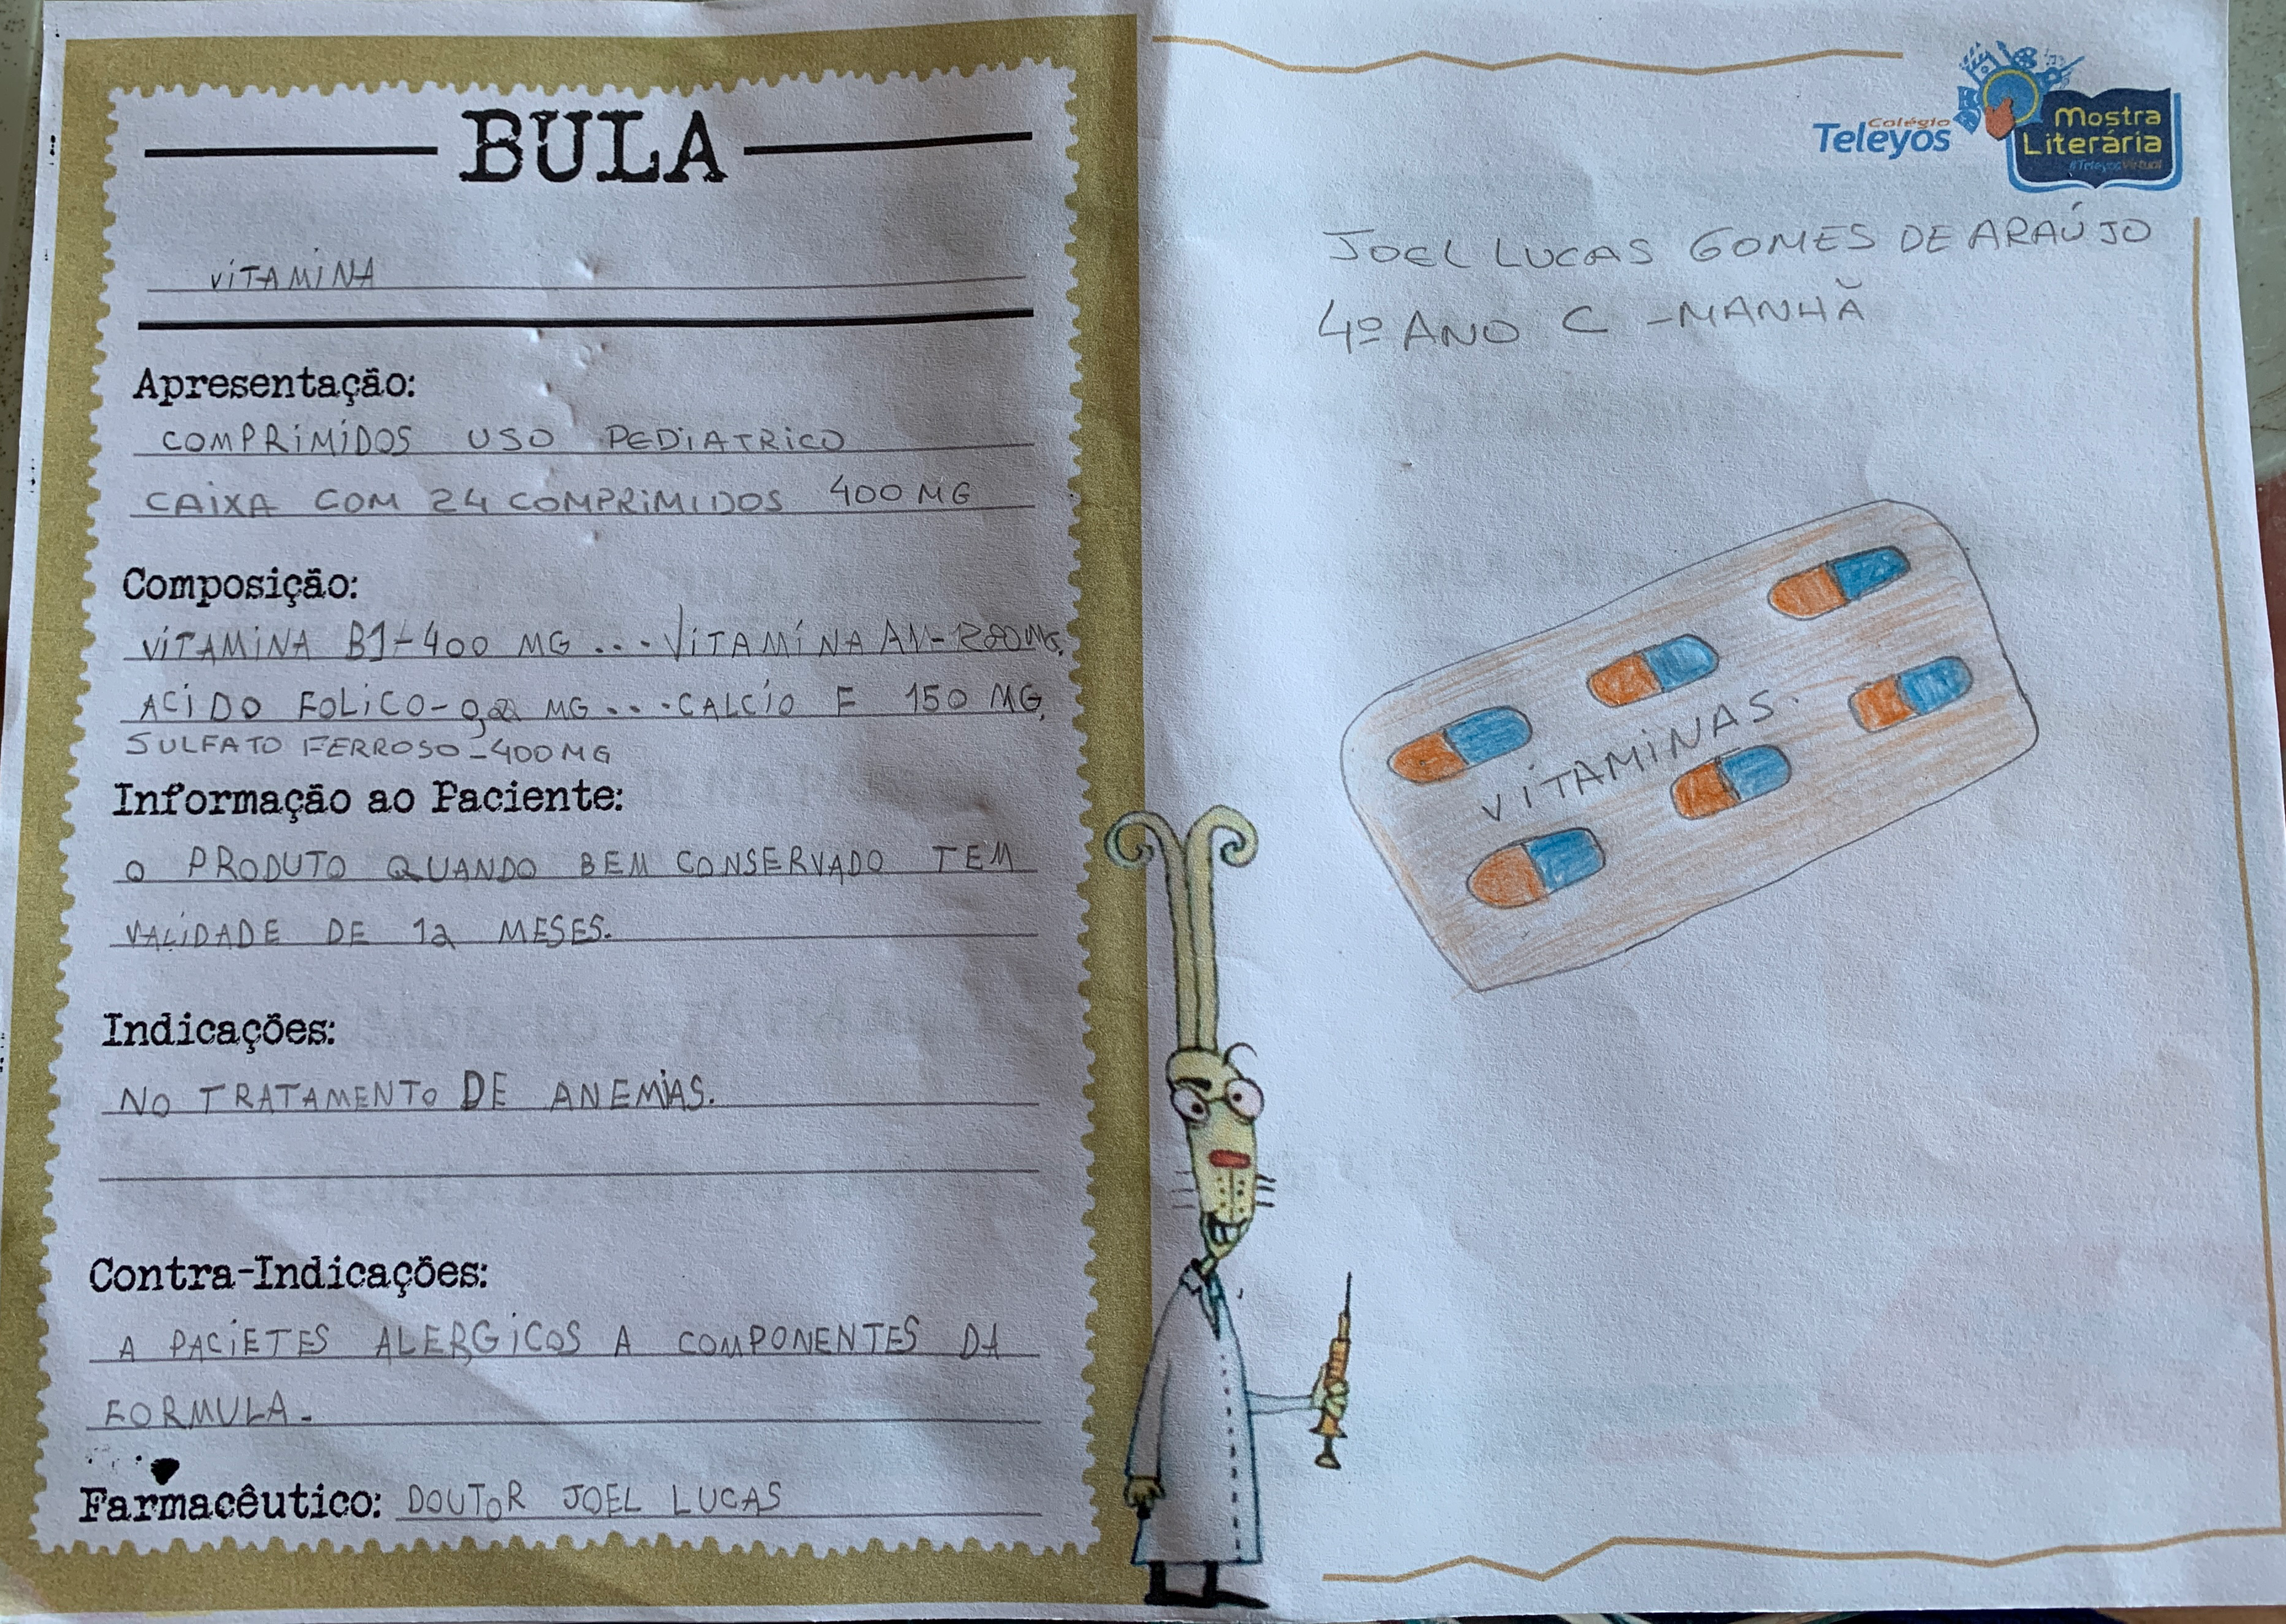 BULA
VITAMINA
Apresentação:
COMPRIMIDOS USO PEDIATRICO
CAIXA COM 24 COMPRIMIDOS 400 MG
Composição:
VITAMINA B1-400 MG ... VITAMINA
ACIDO FOLICO- MG ... CALCIO E 150 MG,
SULFATO FERROSO-400 MG
Informação ao Paciente:
O PRODUTO QUANDO BEM CONSERVADO TEM
VALIDADE DE 12 MESES.
Indicações:
NO TRATAMENTO DE ANEMIAS.
Contra-Indicações:
A PACIETES ALERGICOS A COMPONENTES DA
FORMULA.
Farmacêutico: DOUTOR JOEL LUCAS
Colégio
Teleyos
Mostra
Literária
#TeleyosVirtual
JOEL LUCAS GOMES DE ARAÚJO
4º ANO C - MANHÃ
VITAMINAS.